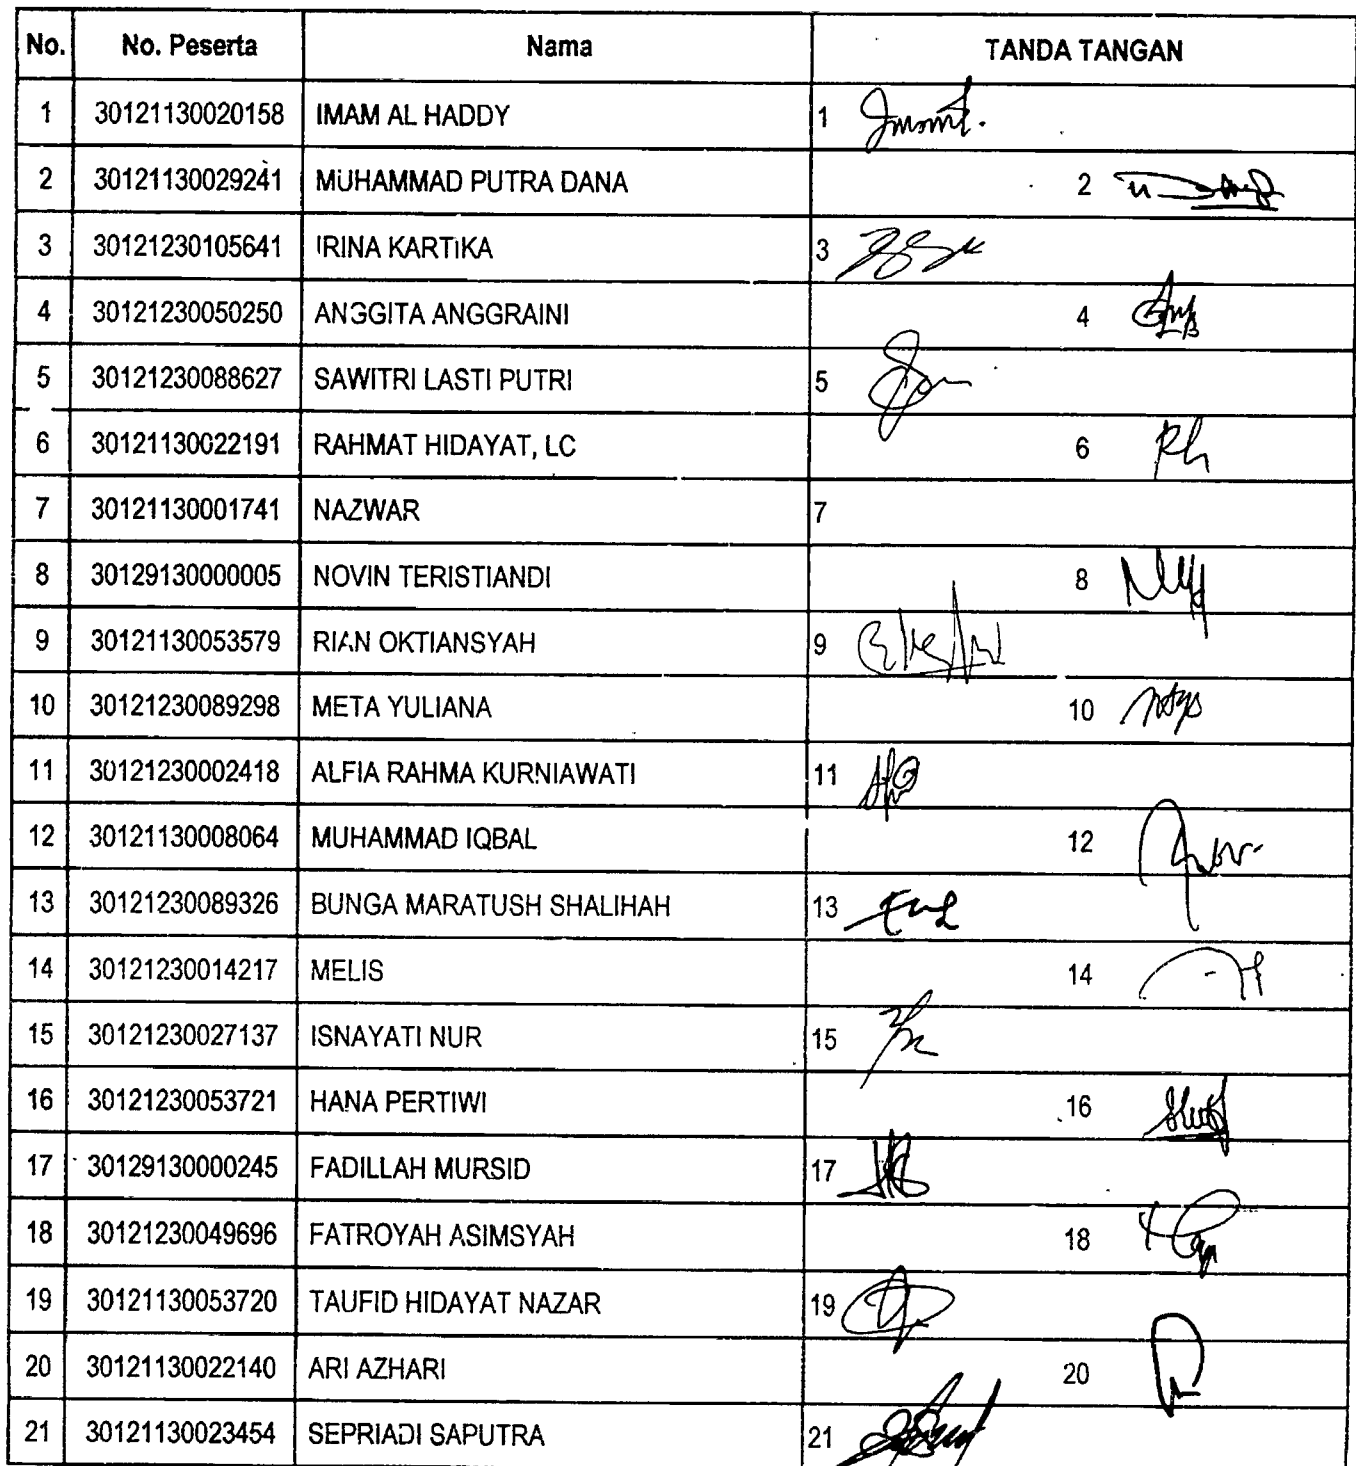 No. No. Peserta Nama TANDA TANGAN
1 30121130020158 IMAM AL HADDY 1
2 30121130029241 MUHAMMAD PUTRA DANA 2
3 30121230105641 IRINA KARTIKA 3
4 30121230050250 ANGGITA ANGGRAINI 4
5 30121230088627 SAWITRI LASTI PUTRI 5
6 30121130022191 RAHMAT HIDAYAT, LC 6 Rh
7 30121130001741 NAZWAR 7
8 30129130000005 NOVIN TERISTIANDI 8
9 30121130053579 RIAN OKTIANSYAH 9
10 30121230089298 META YULIANA 10
11 30121230002418 ALFIA RAHMA KURNIAWATI 11
12 30121130008064 MUHAMMAD IQBAL 12
13 30121230089326 BUNGA MARATUSH SHALIHAH 13
14 30121230014217 MELIS 14
15 30121230027137 ISNAYATI NUR 15
16 30121230053721 HANA PERTIWI 16
17 30129130000245 FADILLAH MURSID 17
18 30121230049696 FATROYAH ASIMSYAH 18
19 30121130053720 TAUFID HIDAYAT NAZAR 19
20 30121130022140 ARI AZHARI 20
21 30121130023454 SEPRIADI SAPUTRA 21